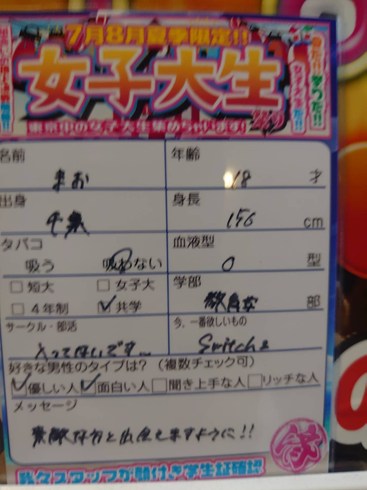 7月8月夏季限定!!
女子大生
東京中の女子大生集めちゃいます!
名前 まお
年齢 18 才
出身 千葉
身長 156 cm
タバコ 吸う 吸わない
血液型 O 型
□短大 □女子大
□4年制 ☑共学
学部 教育 部
サークル・部活 入ってないです…
今、一番欲しいもの Switch2
好きな男性のタイプは?(複数チェック可)
☑優しい人 ☑面白い人 □聞き上手な人 □リッチな人
メッセージ
素敵な方と出会えますように!!